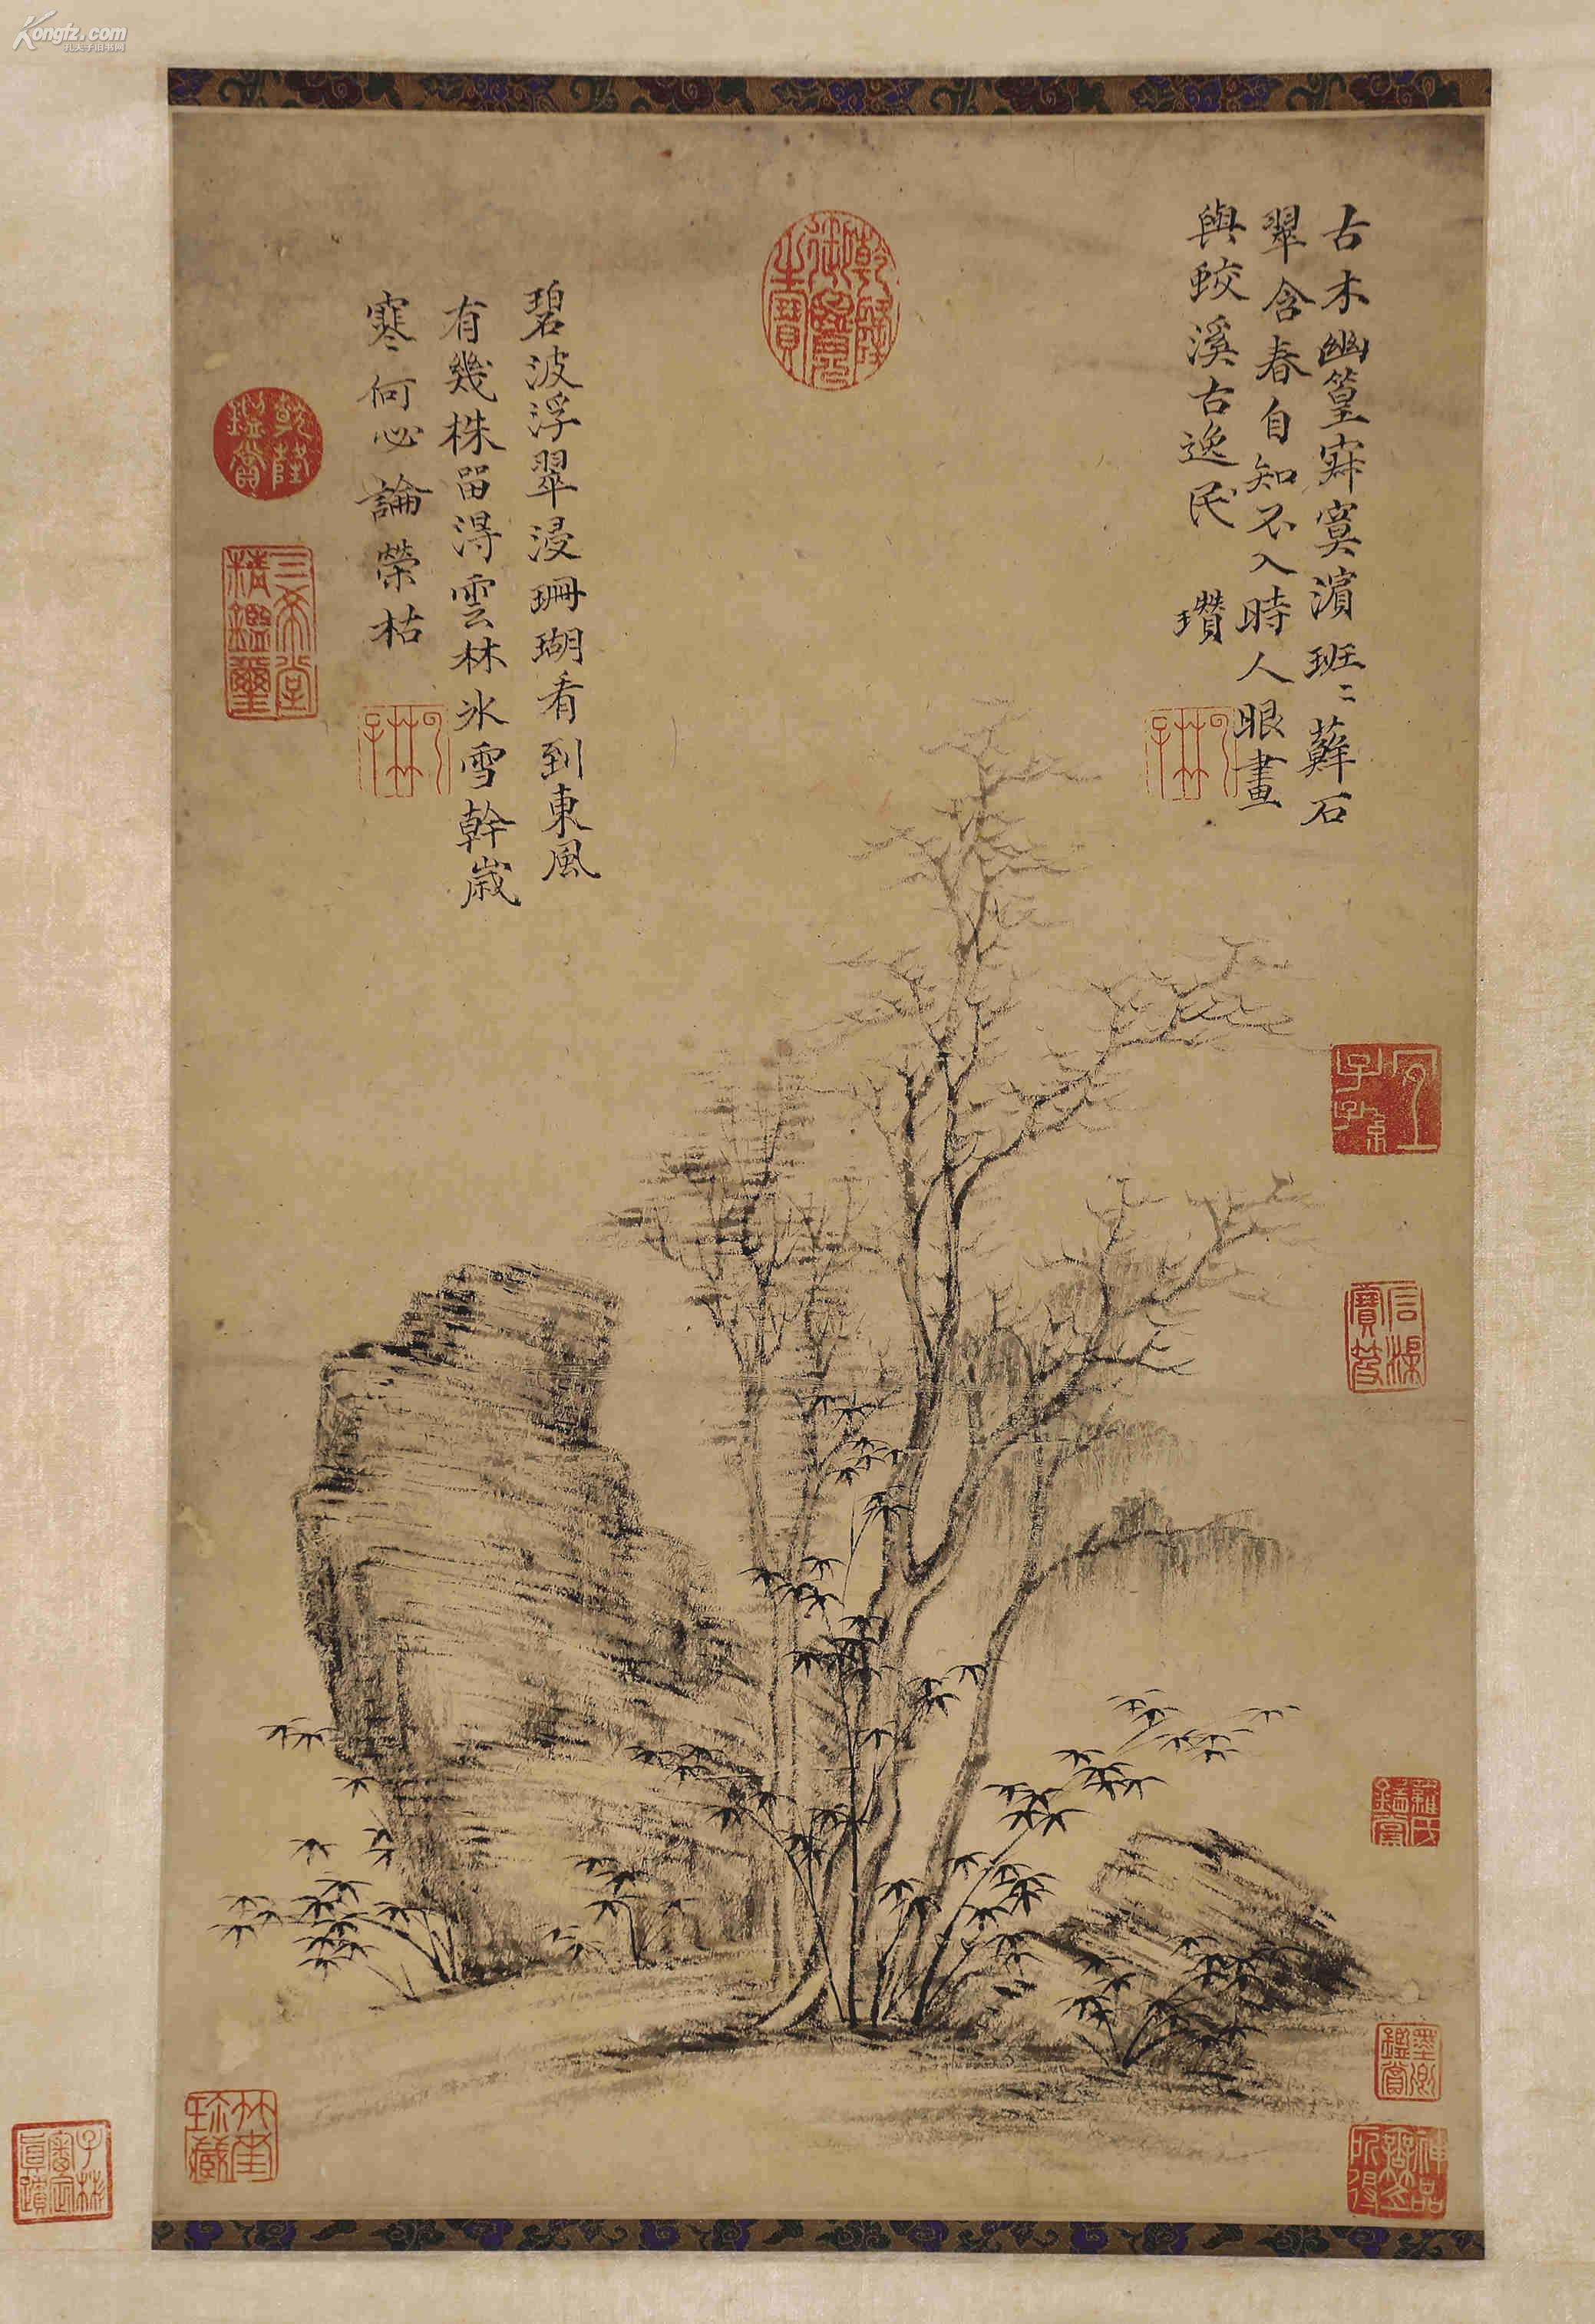 古木幽篁寂寞濱班〻蘚石
翠含春自知不入時人眼畫
與蛟溪古逸民 瓚
碧波浮翠浸珊瑚看到東風
有幾株留得雲林冰雪幹歲
寒何必論榮枯
乾隆御覽之寶
乾隆鑑賞
三希堂精鑑璽
宜子孫
子林審定真蹟
Kongfz.com
孔夫子旧书网